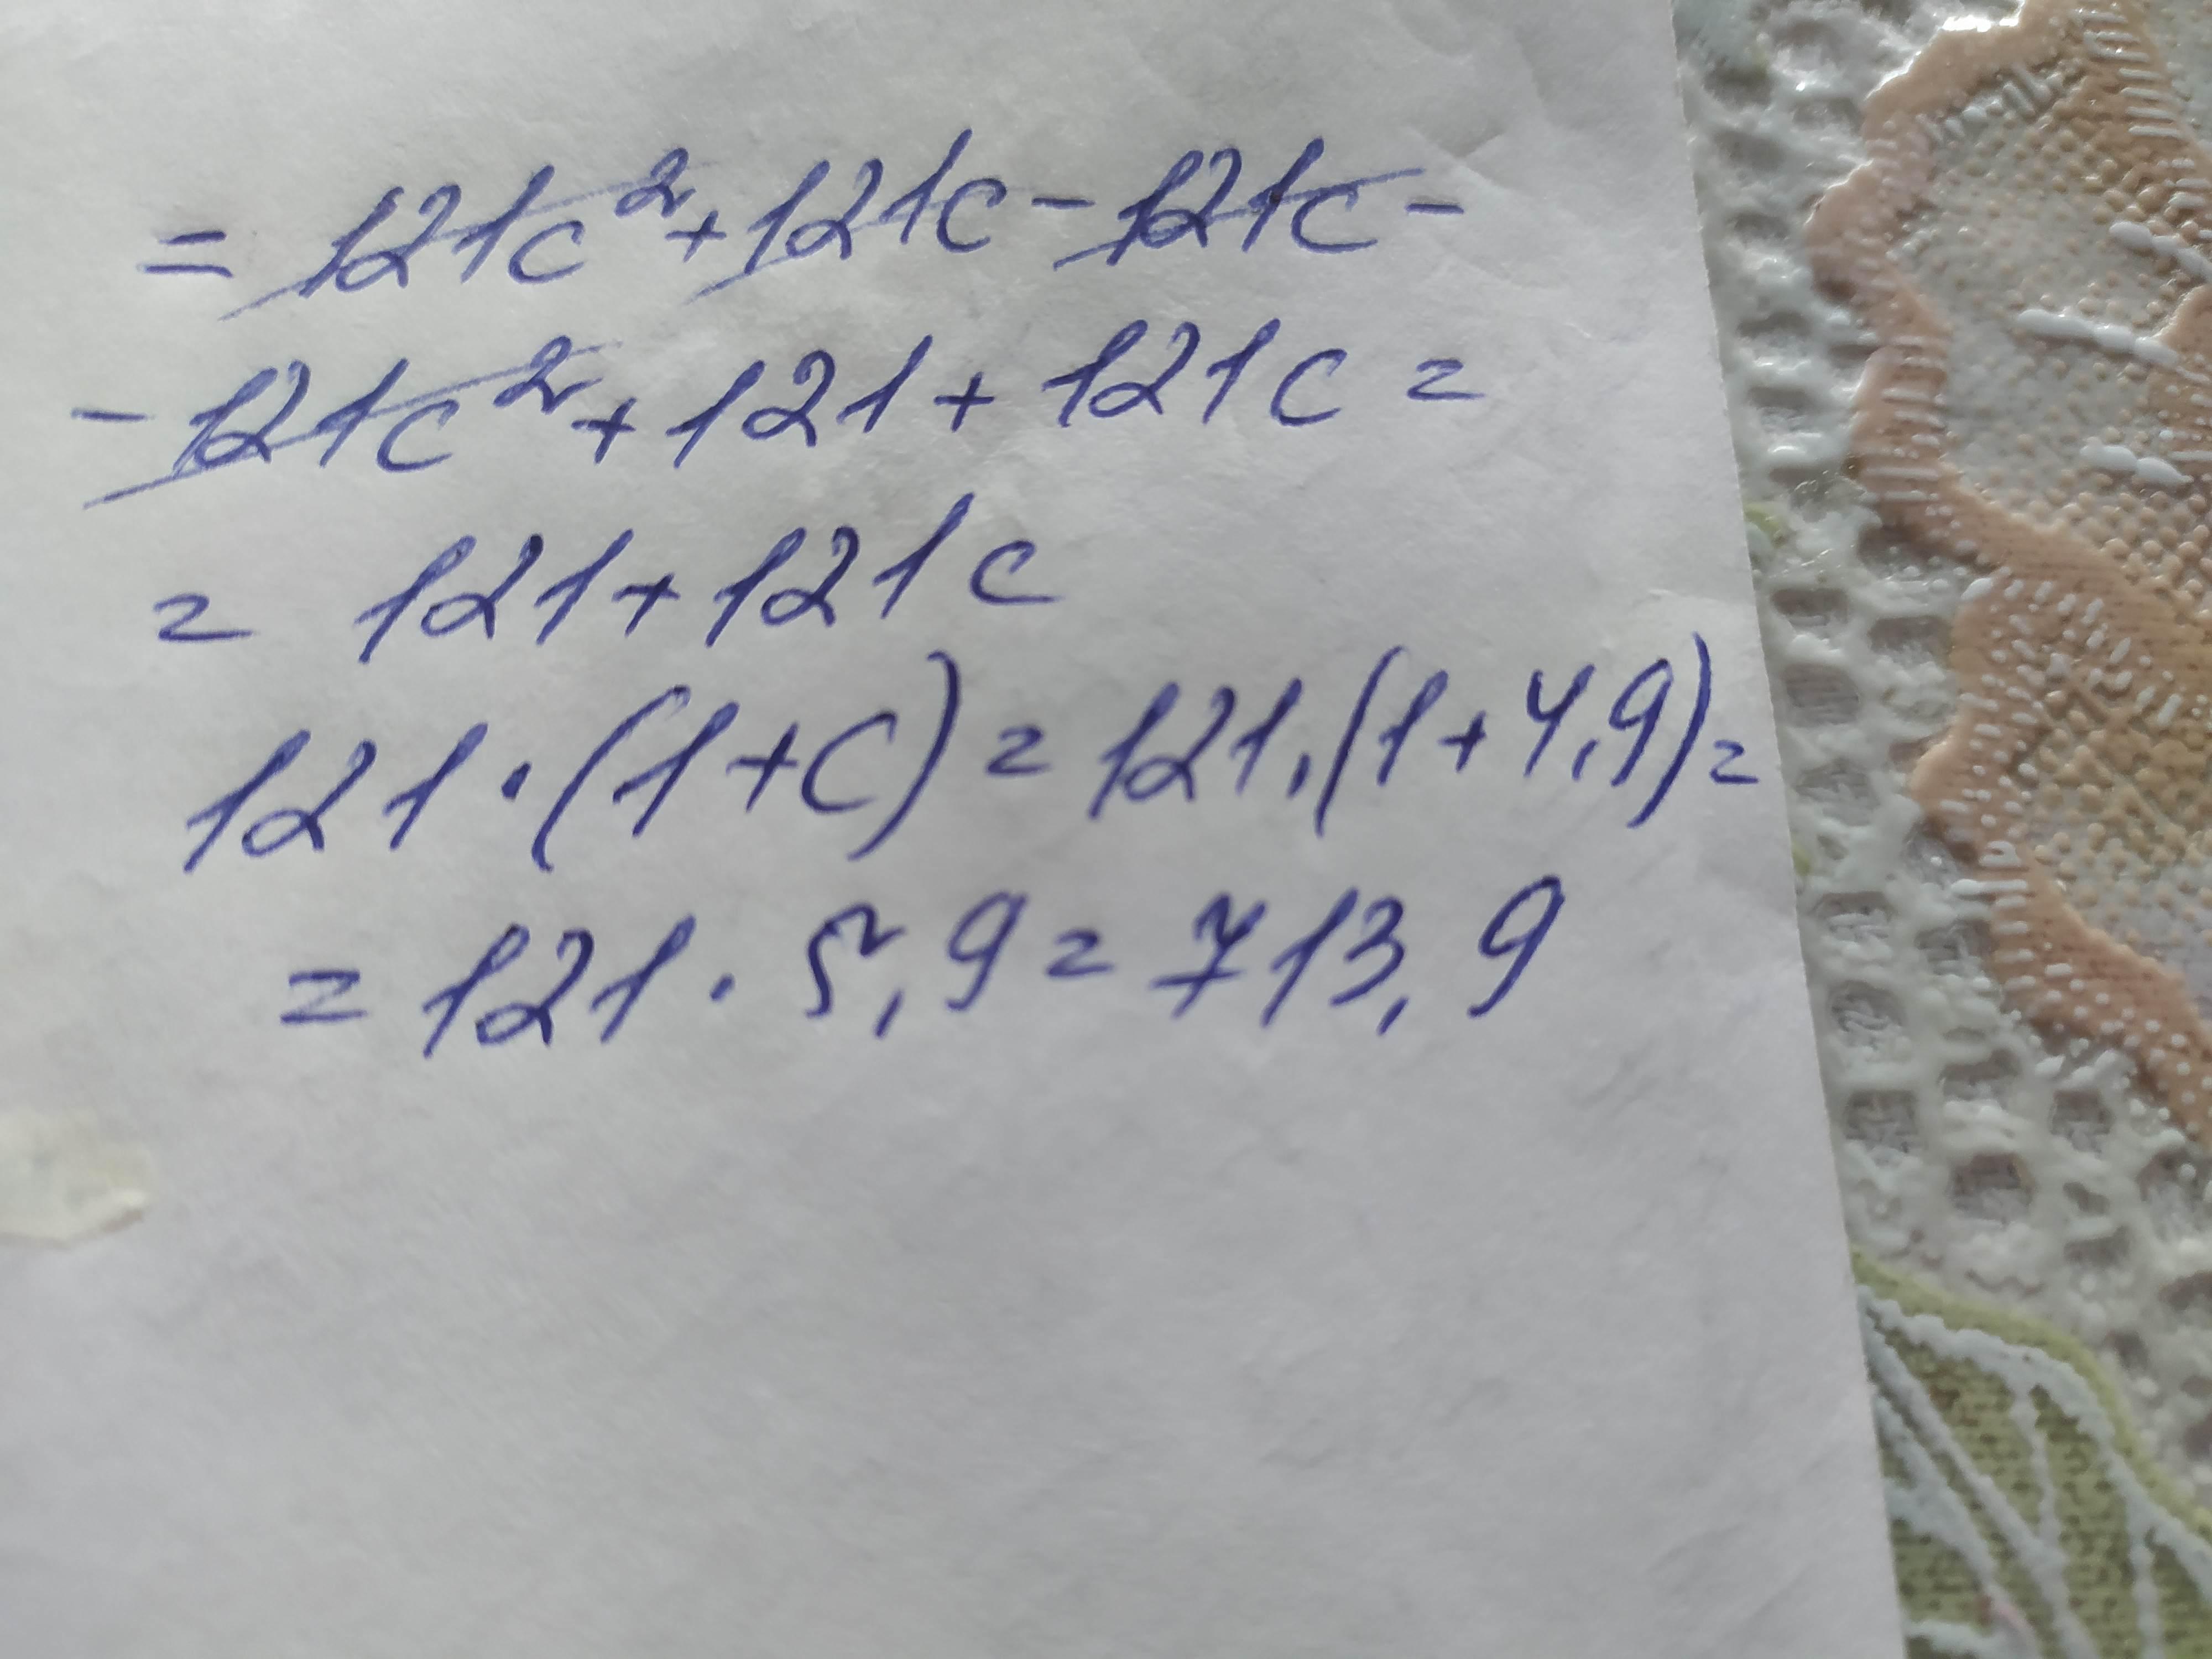 = 121c² + 121c - 121c -
- 121c² + 121 + 121c =
= 121 + 121c
121 · (1 + c) = 121 · (1 + 4,9) =
= 121 · 5,9 = 713,9